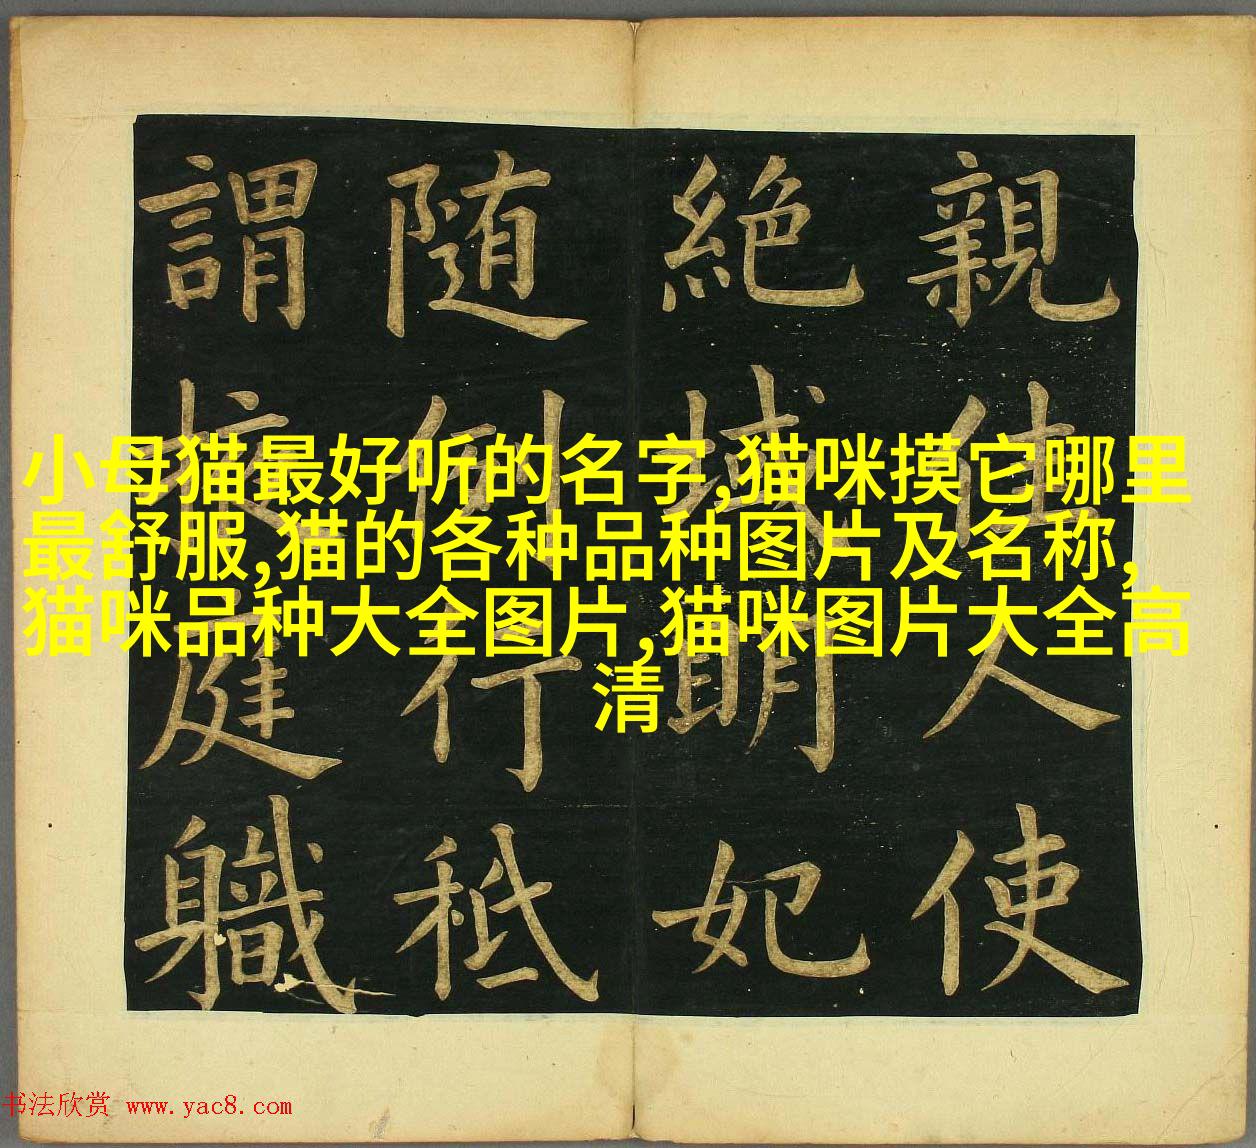 小母猫最好听的名字,猫咪摸它哪里
最舒服,猫的各种品种图片及名称,
猫咪品种大全图片,猫咪图片大全高
清
親佳人使
絶域明妃
随例行秪
謂掖庭職
书法欣赏 www.yac8.com